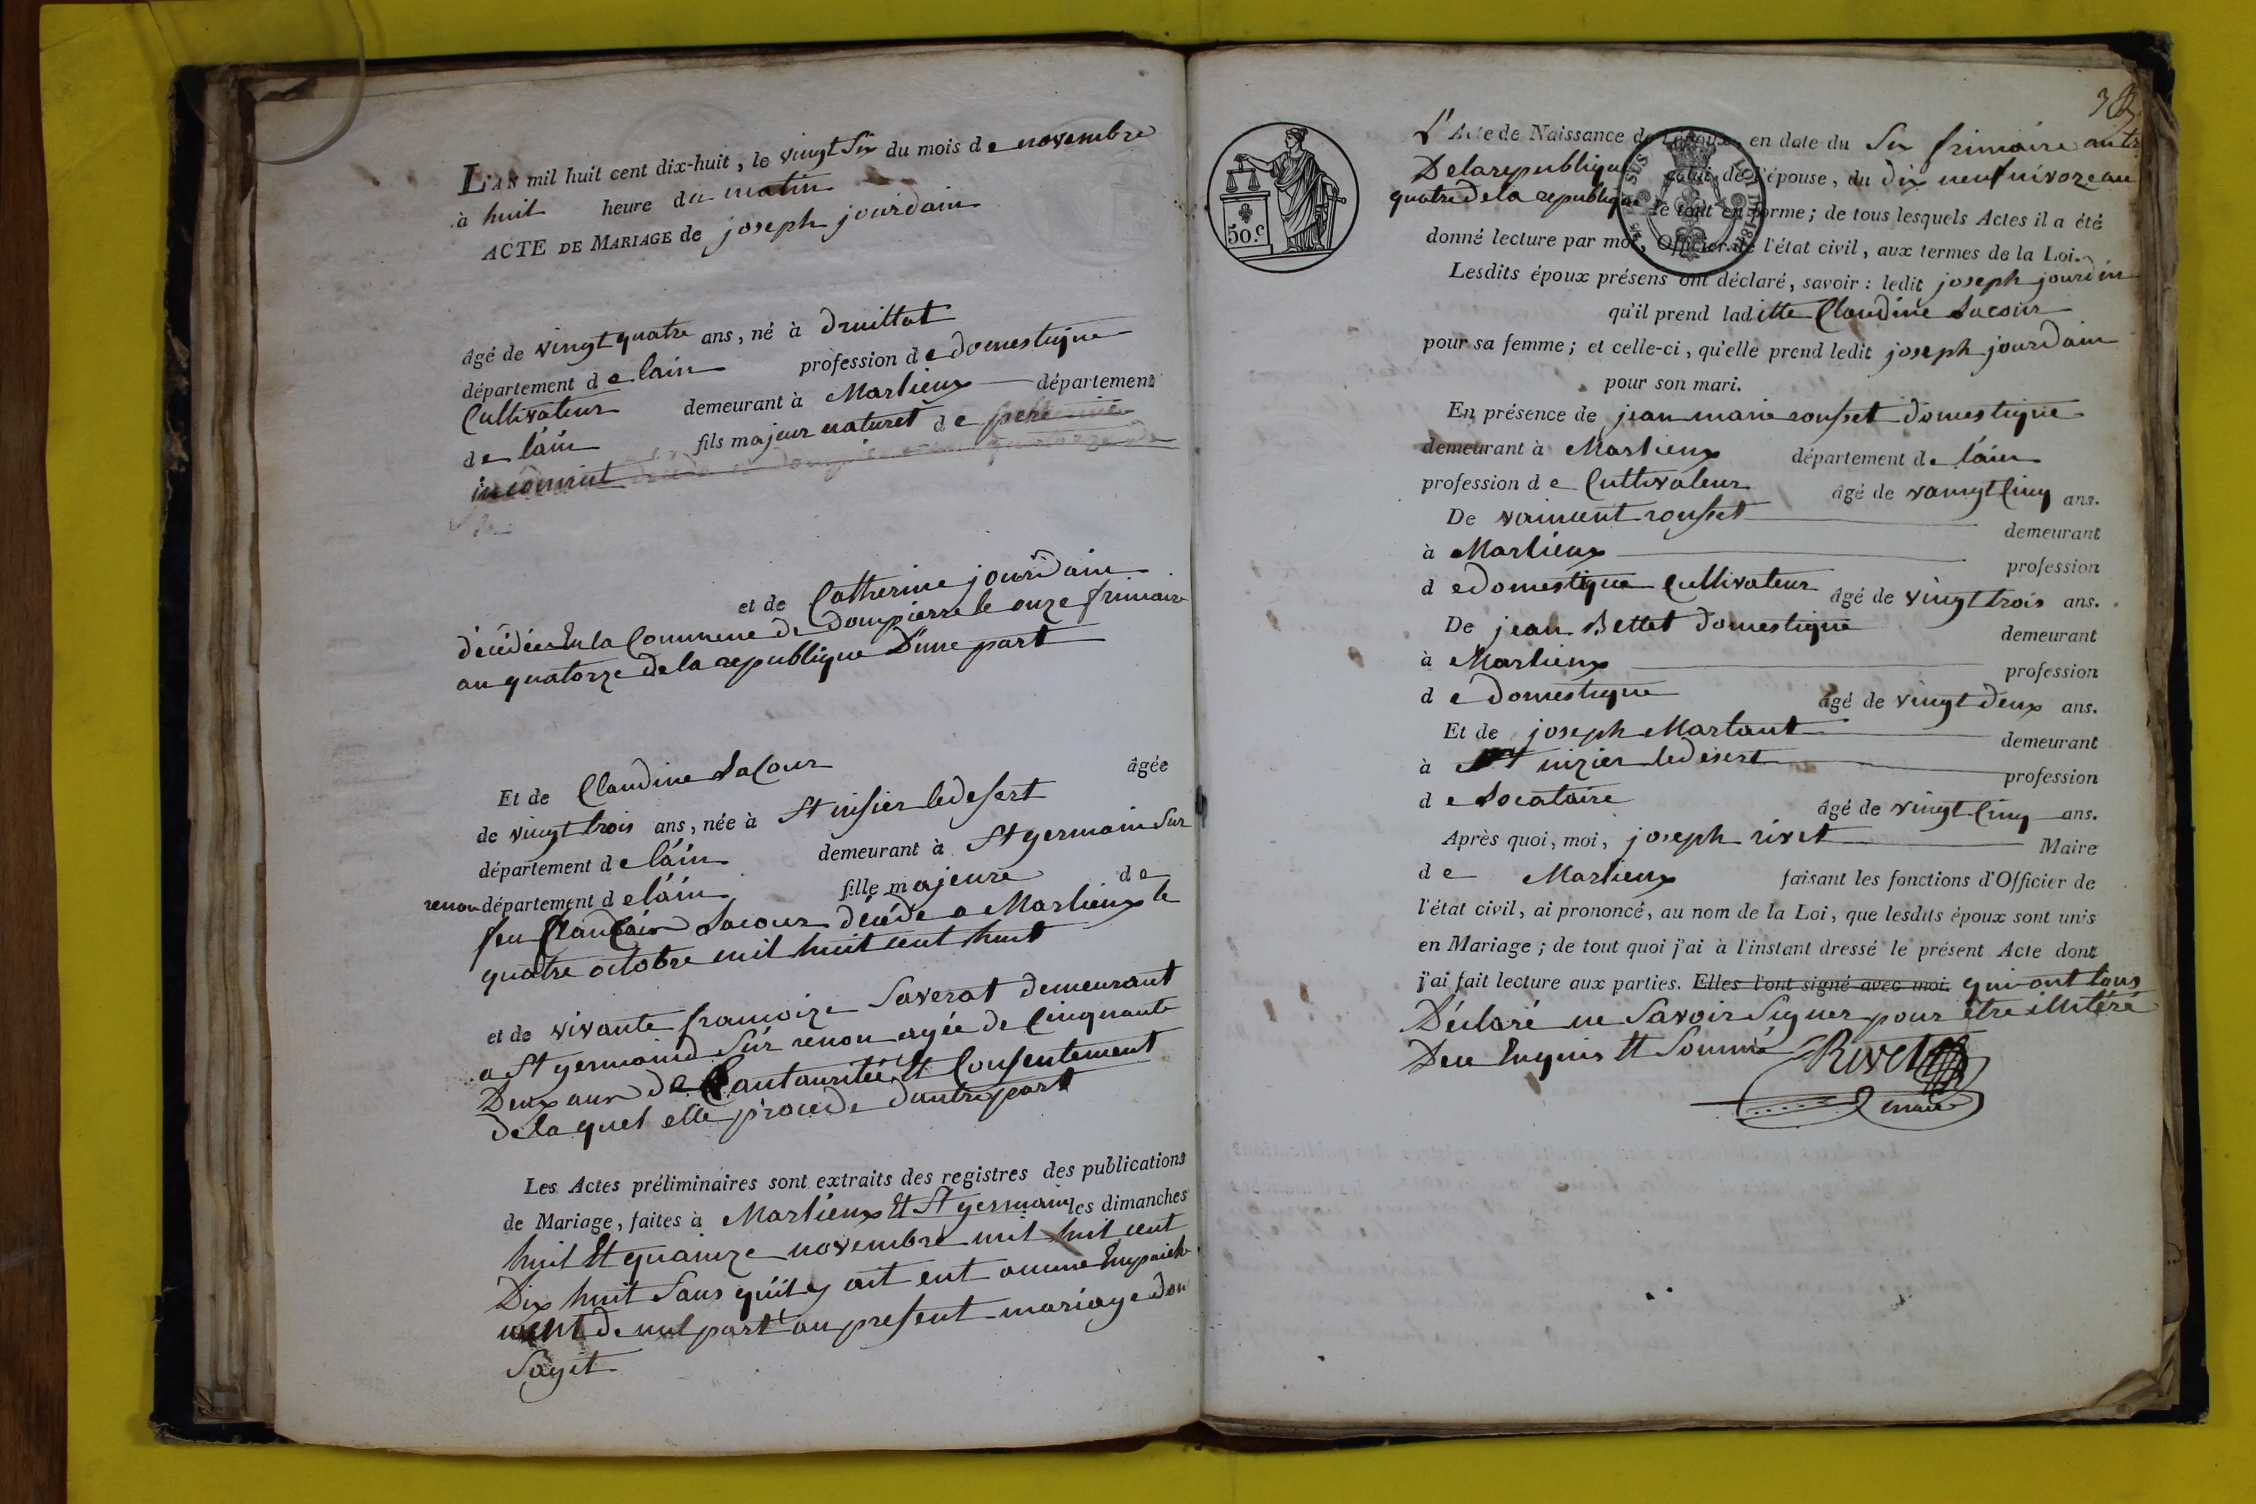 L'AN mil huit cent dix-huit, le vingt Six du mois de novembre
à huit heure du matin
ACTE DE MARIAGE de joseph jourdain
âgé de vingt quatre ans, né à druillat
département de lain profession de domestique
Cultivateur demeurant à Marlieux département
de láin fils majeur naturel de pere
inconnut
et de Catherine jourdain
décédée En la Commune de dompierre le onze frimaire
an quatorze de la republique D'une part
Et de Claudine Lacour âgée
de vingt trois ans, née à St nisier le desert
département de láin demeurant à St germain Sur
renon département de láin fille majeure de
feu Lacour décédé a Marlieux le
quatre octobre mil huit cent huit
et de vivante francoize Saverat demeurant
a St germaind Sur renon agée de Cinquante
Deux ans de Lautauritée Et Consentement
de la quel elle procede d'autre part
Les Actes préliminaires sont extraits des registres des publications
de Mariage, faites à Marlieux Et St germain les dimanches
huit Et quainze novembre mil huit cent
Dix huit Sans qu'il y ait eut aucune Empaiche
ment de nul part au present mariage don
Sagit
50.c
L'Acte de Naissance de l'époux, en date du Six frimaire an
De la republique celui de l'épouse, du dix neuf nivoze an
quatre De la republique le tout en forme; de tous lesquels Actes il a été
donné lecture par moi, Officier de l'état civil, aux termes de la Loi.
Lesdits époux présens ont déclaré, savoir: ledit joseph jourdin
qu'il prend laditte Claudine Lacour
pour sa femme; et celle-ci, qu'elle prend ledit joseph jourdain
pour son mari.
En présence de jean marie rousset domestique
demeurant à Marlieux département de láin
profession de Cultivateur âgé de vaingt Cinq ans.
De vaincent rousset demeurant
à Marlieux profession
de domestique Cultivateur âgé de vingt trois ans.
De jean Bettet domestique demeurant
à Marlieux profession
de domestique âgé de vingt deux ans.
Et de joseph Martaut demeurant
à St nizier le desert profession
de Locataire âgé de vingt Cinq ans.
Après quoi, moi, joseph rivet Maire
de Marlieux faisant les fonctions d'Officier de
l'état civil, ai prononcé, au nom de la Loi, que lesdits époux sont unis
en Mariage; de tout quoi j'ai à l'instant dressé le présent Acte dont
j'ai fait lecture aux parties. Elles l'ont signé avec moi. qui ont tous
Déclaré ne Savoir Signer pour être illitéré
De ce Enquis Et Sommé Rivet
maire